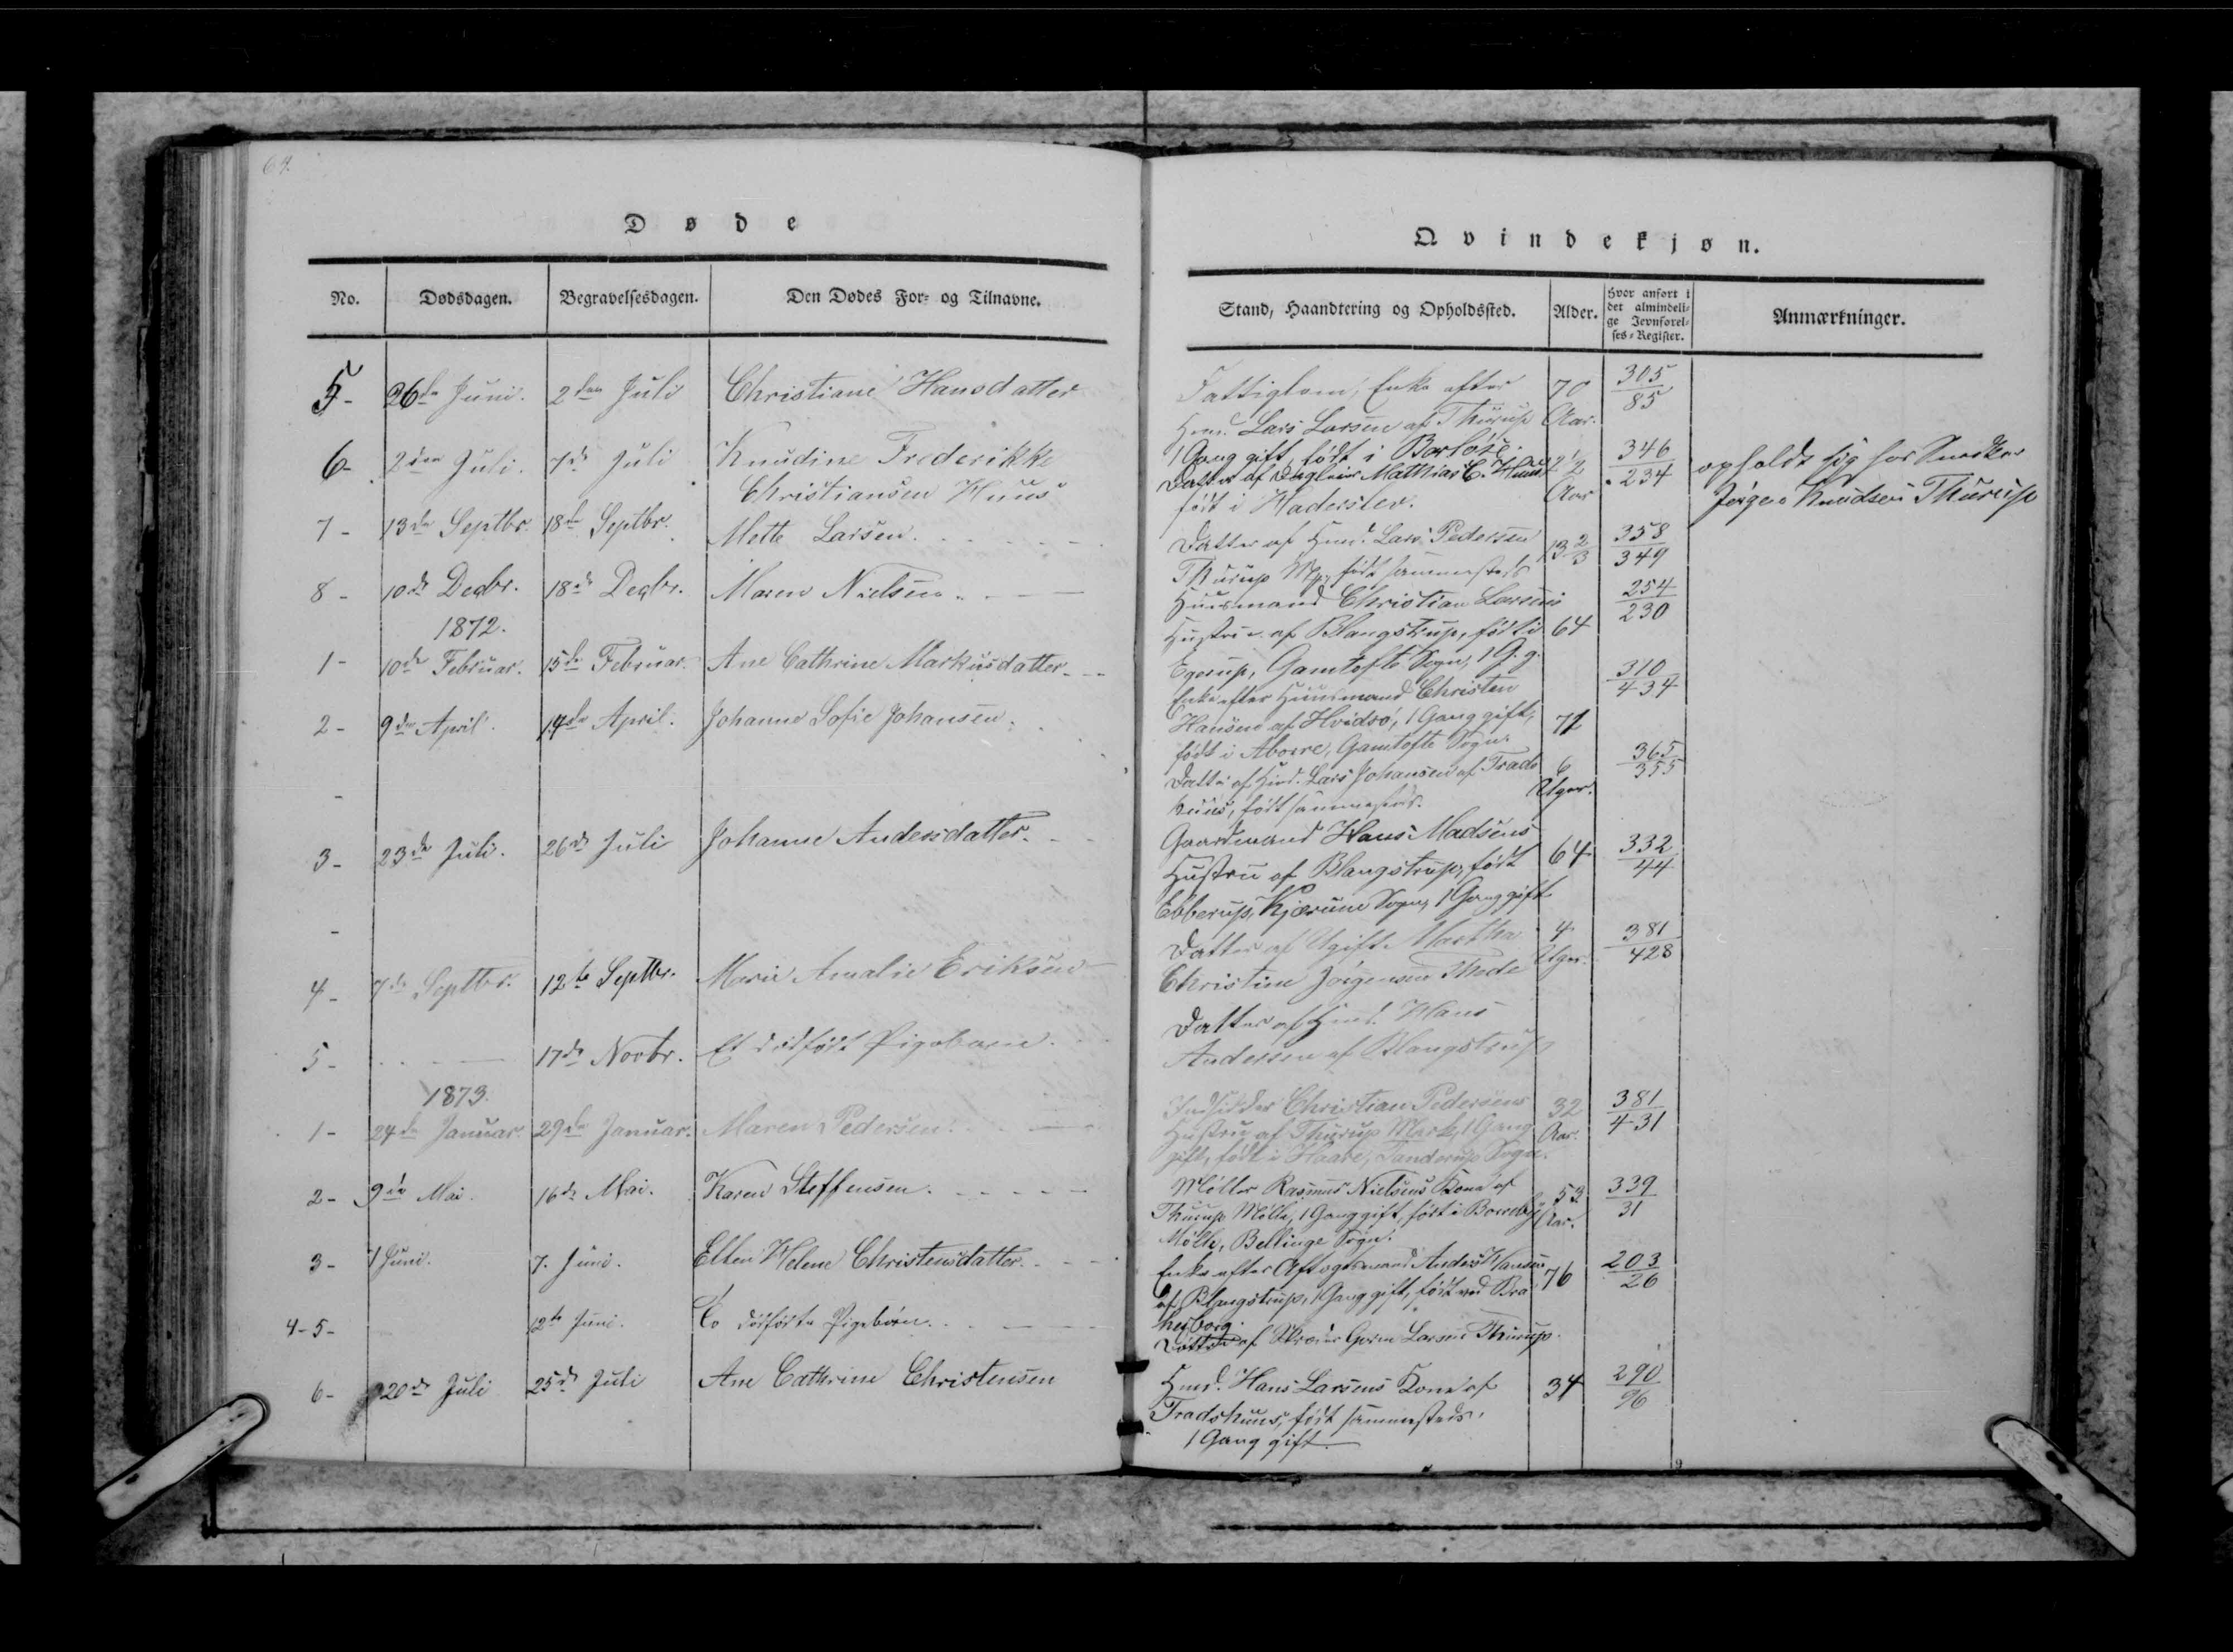 64.
Døde
Qvindekjøn.
No. Dødsdagen. Begravelsesdagen. Den Dødes For- og Tilnavne. Stand, Haandtering og Opholdssted. Alder. Hvor anført i det almindelige Jevnførelses-Register. Anmærkninger.
5- 26de Juni. 2den Juli Christiane Hansdatter
Fattiglem, Enke efter 70 305/85
Hmd. Lars Larsen af Thurup Aar.
1 Gang gift, født i Borløse.
6- 2den Juli. 7de Juli Knudine Frederikke
Christiansen Huus
Datter af Dagleier Mathias C. Huus 2 1/2 346/234 opholdt sig hos Snedker
født i Haderslev. Aar Jørgen Knudsen Thurup
7- 13de Septbr. 18de Septbr. Mette Larsen.
Datter af Hmd. Lars Pedersen 13 2/3 358/349
Thurup født sammesteds
8- 10de Decbr. 18de Decbr. Maren Nielsen.
Huusmand Christian Larsens 254/230
Hustru af Blangstrup, født i 64
Egerup, Gamtofte Sogn, 1 G. g.
1872.
1- 10de Februar. 15de Februar. Ane Cathrine Markusdatter
Enke efter Huusmand Christen 310/434
Hansen af Hvidsø, 1 Gang gift, 71
født i Aborre, Gamtofte Sogn.
2- 9de April. 14de April. Johanne Sofie Johansen.
Datter af Hmd. Lars Johansen af Trads 6 365/355
huus, født sammesteds. Uger.
3- 23de Juli. 26de Juli Johanne Andersdatter.
Gaardmand Hans Madsens 64 332/44
Hustru af Blangstrup, født
Ebberup, Kjærum Sogn, 1 Gang gift
4- 7de Septbr. 12te Septbr. Marie Amalie Eriksen
Datter af Ugift Martha 4 381/428
Christine Jørgensen Thede Uger.
5- 17de Novbr. Et dødfødt Pigebarn.
Datter af Hmd. Hans
Andersen af Blangstrup
1873.
1- 24de Januar. 29de Januar. Maren Pedersen.
Indsidder Christian Pedersens 32 381/431
Hustru af Thurup Mark, 1 Gang Aar.
gift, født i Haare, Tanderup Sogn.
2- 9de Mai. 16de Mai. Karen Steffensen.
Møller Rasmus Nielsens Kone af 53 339/31
Thurup Mølle, 1 Gang gift, født i Aar.
Mølle, Bellinge Sogn.
3- 1 Juni. 7. Juni. Ellen Helene Christensdatter.
Enke efter Aftægtsmand Anders Hansen 76 203/26
af Blangstrup, 1 Gang gift, født ved Bra
hesborg.
4-5- 12te Juni. To dødfødte Pigebørn.
Døttre af Larsen Thurup.
6- 20de Juli 25de Juli Ane Cathrine Christensen
Hmd. Hans Larsens Kone af 34 290/96
Tradshuus, født sammesteds.
1 Gang gift.
9